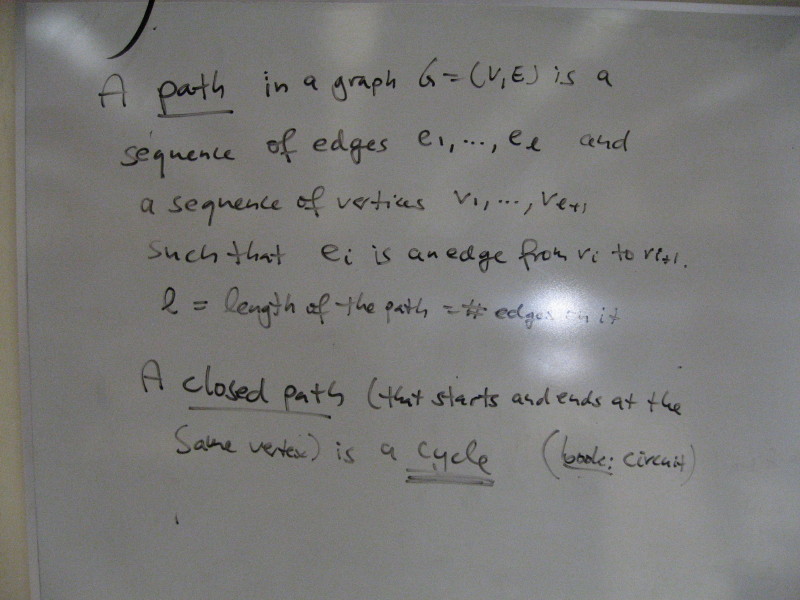 A path in a graph G = (V, E) is a
sequence of edges e₁, ..., eₗ and
a sequence of vertices v₁, ..., vₗ₊₁
such that eᵢ is an edge from vᵢ to vᵢ₊₁.
l = length of the path = # edges on it
A closed path (that starts and ends at the
same vertex) is a cycle (book: circuit)